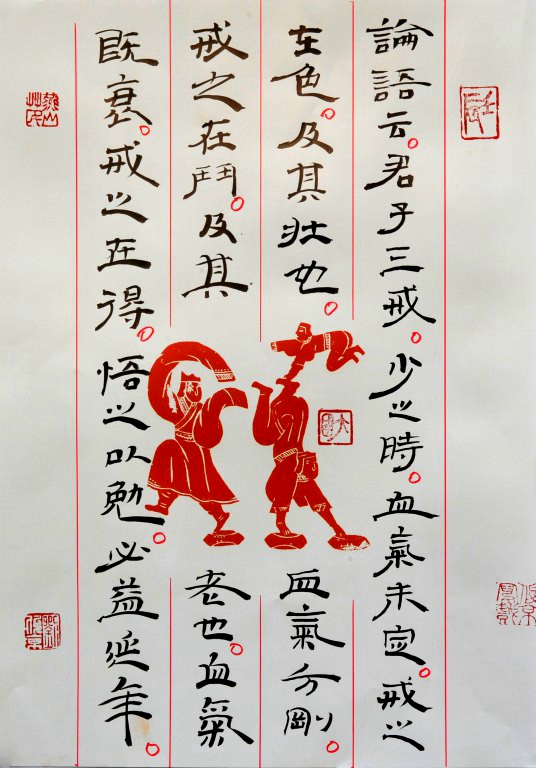 論語云。君子三戒。少之時。血氣未定。戒之
在色。及其壯也。血氣方剛。
戒之在鬥。及其老也。血氣
既衰。戒之在得。悟之以勉。必益延年。